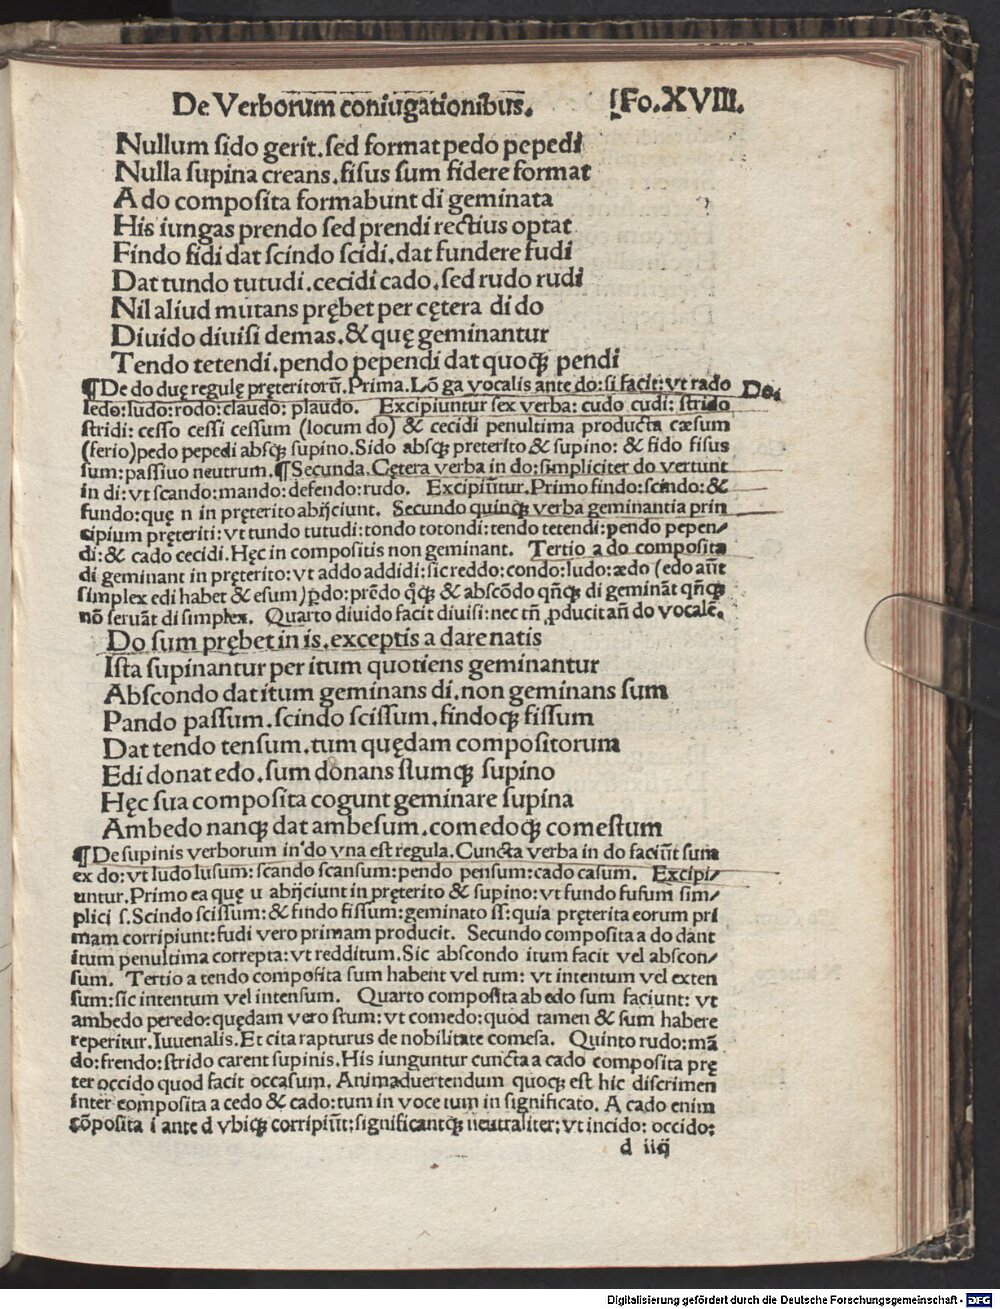 De Verborum coniugationibus. Fo.XVIII.
Nullum sido gerit.sed format pedo pepedi
Nulla supina creans.fisus sum fidere format
A do composita formabunt di geminata
His iungas prendo sed prendi rectius optat
Findo fidi dat scindo scidi.dat fundere fudi
Dat tundo tutudi.cecidi cado.sed rudo rudi
Nil aliud mutans prębet per cętera di do
Diuido diuisi demas.& quę geminantur
Tendo tetendi.pendo pependi dat quoqꝫ pendi
¶De do duę regulę pręteritorū.Prima.Lō ga vocalis ante do:si facit:vt rado Do.
ledo:ludo:rodo:claudo: plaudo. Excipiuntur sex verba: cudo cudi: strido
stridi: cesso cessi cessum (locum do) & cecidi penultima producta cæsum
(ferio)pedo pepedi absqꝫ supino.Sido absqꝫ preterito & supino: & fido fisus
sum:passiuo neutrum.¶Secunda.Cętera verba in do:simpliciter do vertunt
in di:vt scando:mando:defendo:rudo. Excipiūtur.Primo findo:scindo:&
fundo:quę n in pręterito abijciunt. Secundo quinqꝫ verba geminantia prin
cipium pręteriti:vt tundo tutudi:tondo totondi:tendo tetendi:pendo pepen/
di:& cado cecidi.Hęc in compositis non geminant. Tertio a do composita
di geminant in pręterito:vt addo addidi:sic reddo:condo:ludo:ædo (edo aūt
simplex edi habet & esum)ꝑdo:prēdo q̄qꝫ & abscōdo qn̄qꝫ di gemināt qn̄qꝫ
nō seruāt di simplex. Quarto diuido facit diuisi:nec tn̄ ꝓducit an̄ do vocalē.
Do sum prębet in is.exceptis a dare natis
Ista supinantur per itum quotiens geminantur
Abscondo dat itum geminans di.non geminans sum
Pando passum.scindo scissum.findoqꝫ fissum
Dat tendo tensum.tum quędam compositorum
Edi donat edo.sum donans stumqꝫ supino
Hęc sua composita cogunt geminare supina
Ambedo nanqꝫ dat ambesum.comedoqꝫ comestum
¶De supinis verborum in do vna est regula.Cuncta verba in do faciūt sum
ex do:vt ludo lusum:scando scansum:pendo pensum:cado casum. Excipi/
untur.Primo ea quę u abijciunt in pręterito & supino:vt fundo fusum sim/
plici s.Scindo scissum:& findo fissum:geminato ss:quia pręterita eorum pri
mam corripiunt:fudi vero primam producit. Secundo composita a do dant
itum penultima correpta:vt redditum.Sic abscondo itum facit vel abscon/
sum. Tertio a tendo composita sum habent vel tum: vt intentum vel exten
sum:sic intentum vel intensum. Quarto composita ab edo sum faciunt: vt
ambedo peredo:quędam vero stum:vt comedo:quod tamen & sum habere
reperitur.Iuuenalis.Et cita rapturus de nobilitate comesa. Quinto rudo:mā
do:frendo:strido carent supinis.His iunguntur cuncta a cado composita prę
ter occido quod facit occasum. Animaduertendum quoqꝫ est hic discrimen
inter composita a cedo & cado:tum in voce tum in significato. A cado enim
cōposita i ante d vbiqꝫ corripiūt:significantqꝫ neutraliter:vt incido: occido:
d iiij
Digitalisierung gefördert durch die Deutsche Forschungsgemeinschaft - DFG